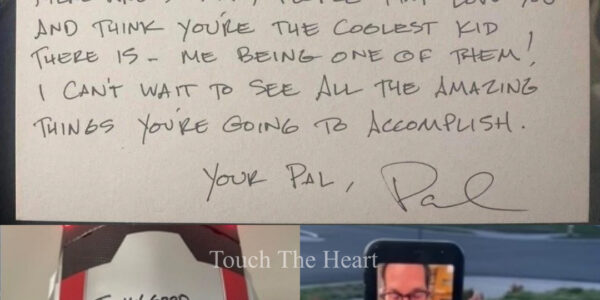 PEOPLE THAT LOVE YOU
AND THINK YOU'RE THE COOLEST KID
THERE IS - ME BEING ONE OF THEM!
I CAN'T WAIT TO SEE ALL THE AMAZING
THINGS YOU'RE GOING TO ACCOMPLISH.
YOUR PAL,
Touch The Heart
GOOD